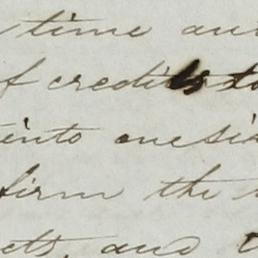 time and
of credits to
into one si
firm the
cts, and